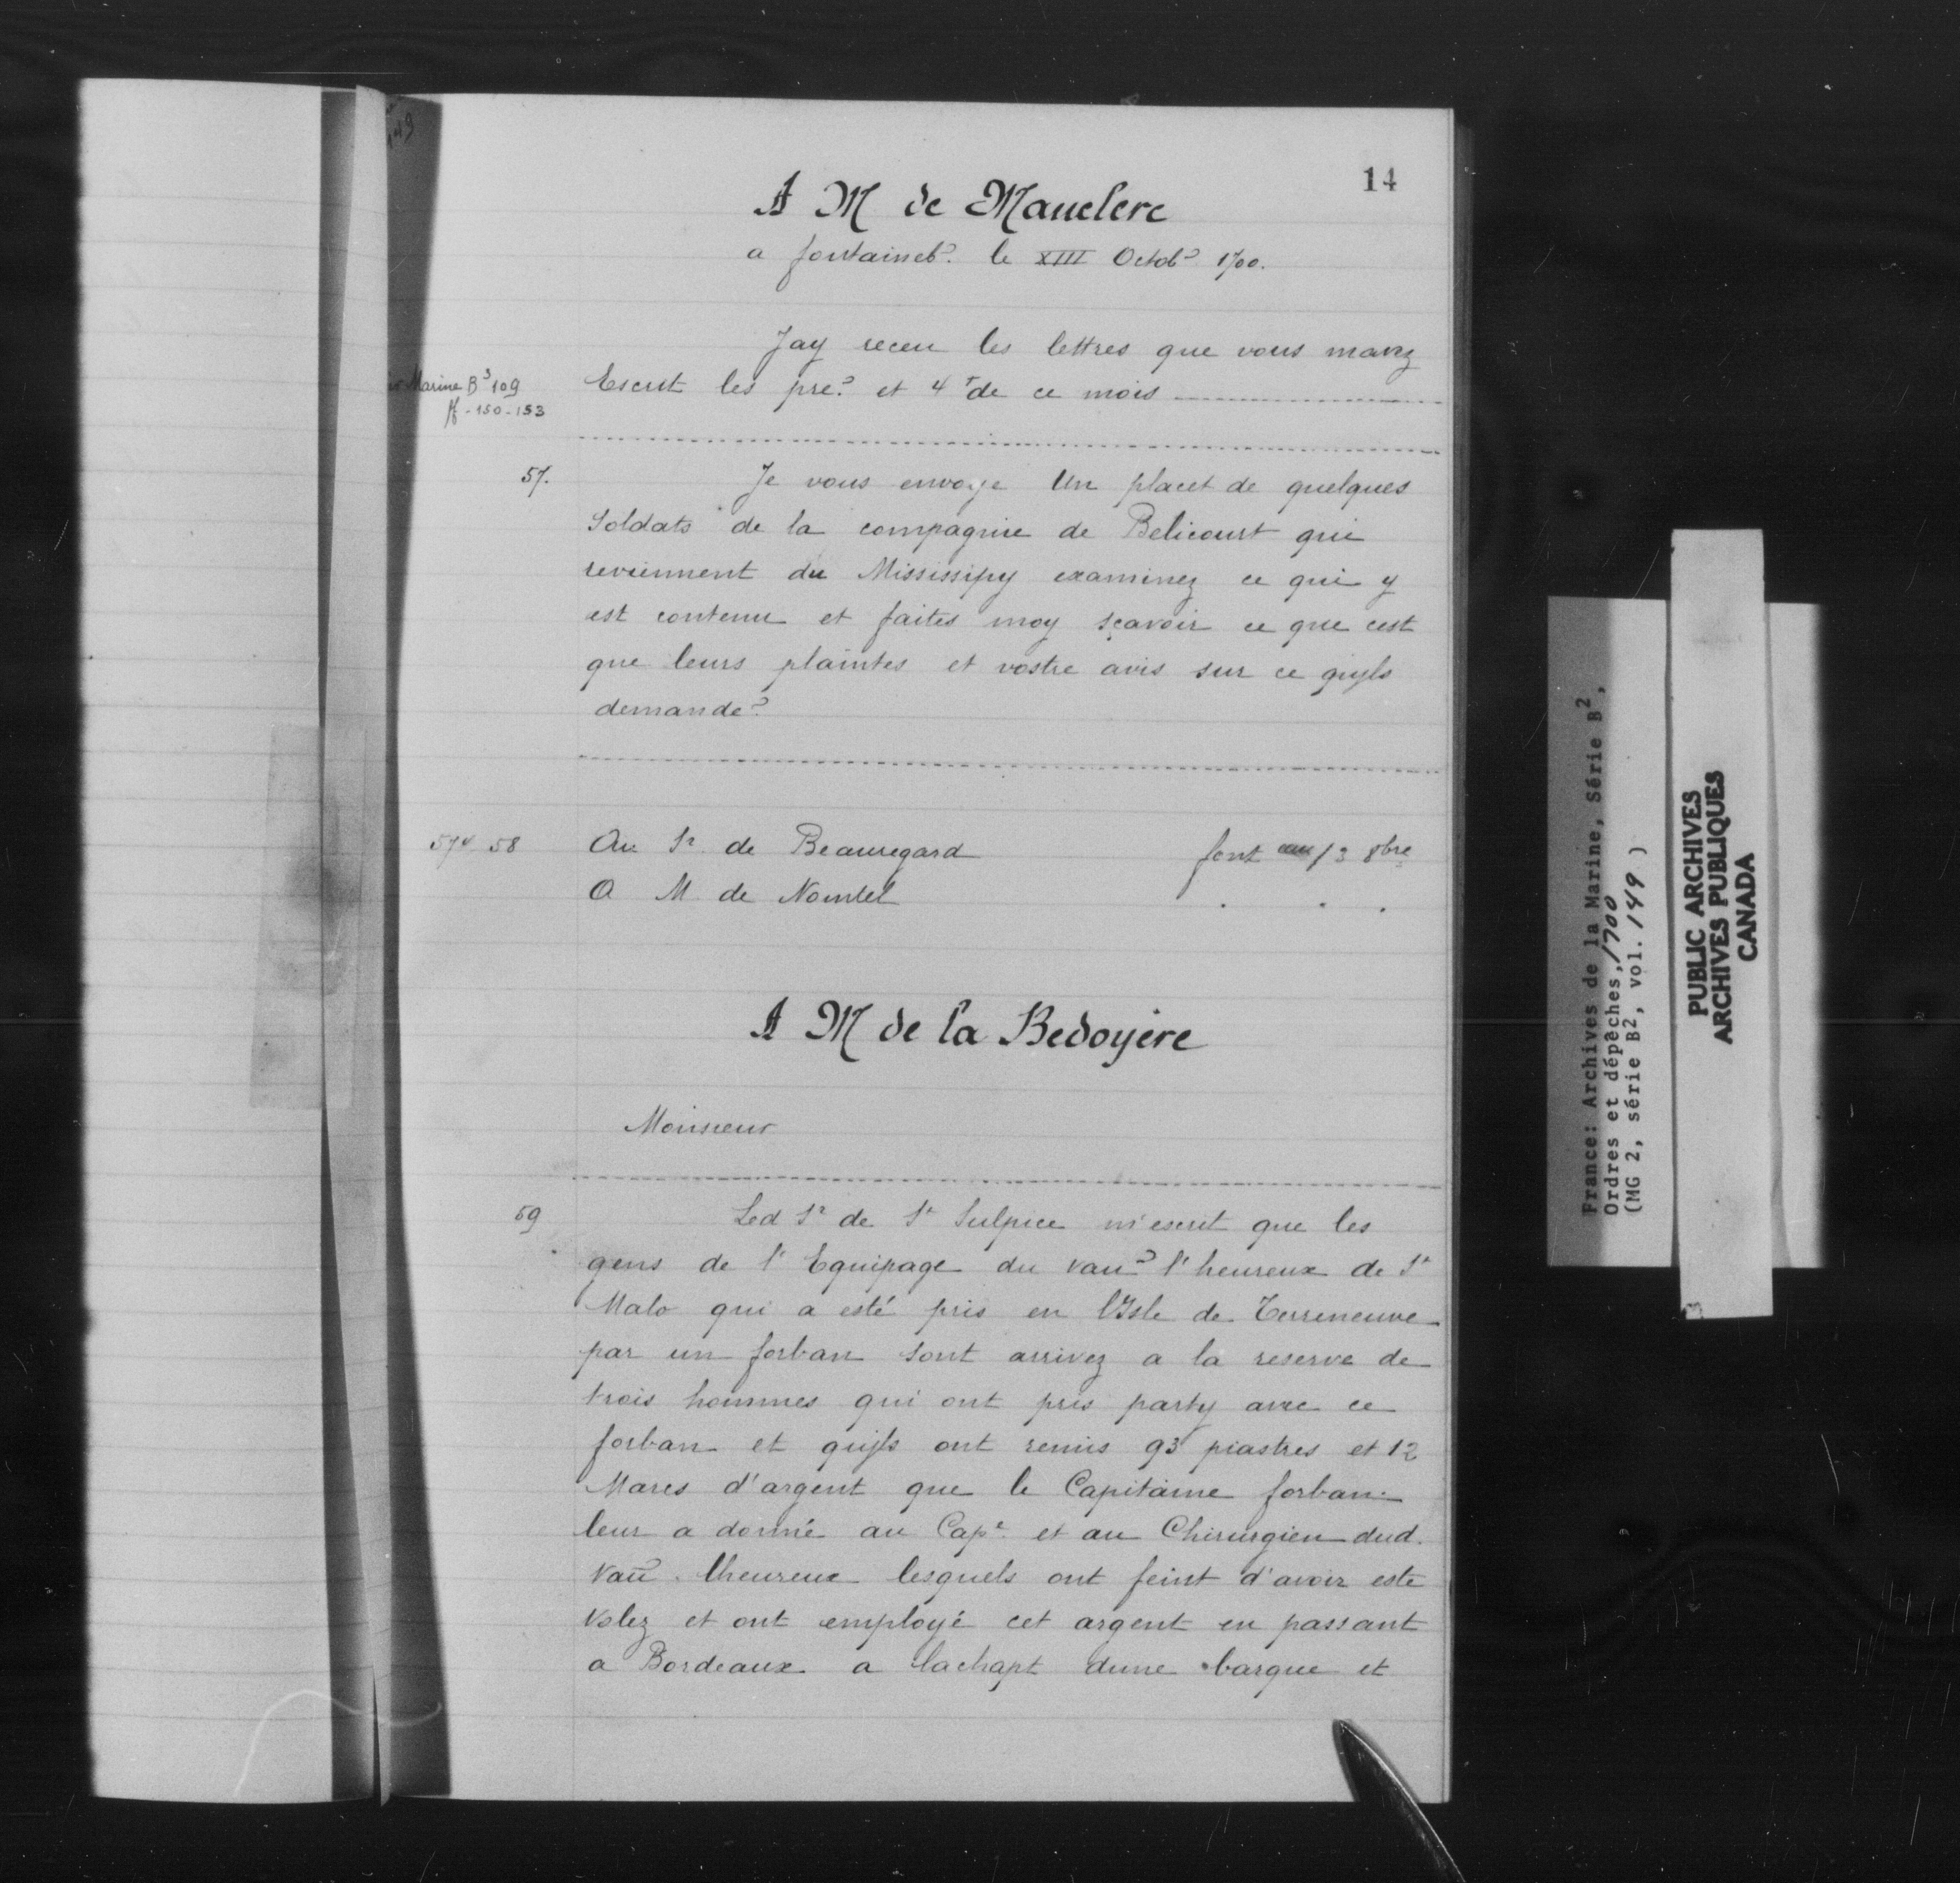 14
A M de Mauclerc
a fontaineb? le XIII Octob? 1700.
Jay receu les lettres que vous mavez
Marine B3 109
ff - 150-153
Escrit les pre? et 4r de ce mois
57.
Je vous envoye Un placet de quelques
Soldats de la compagnie de Belicourt qui
reviennent du Mississipy examinez ce qui y
est contenu et faites moy sçavoir ce que cest
que leurs plaintes et vostre avis sur ce quyls
demande?
57v 58
Au Sr de Beauregard font 13 8bre
A M de Nointel . . .
A M de la Bedoyère
Monsieur
59
Led Sr de St Sulpice m'escrit que les
gens de l'Equipage du vau? l'heureux de St
Malo qui a esté pris en l'Isle de Terreneuve
par un forban sont arrivez a la reserve de
trois hommes qui ont pris party avec ce
forban et quyls ont remis 93 piastres et 12
Marcs d'argent que le Capitaine forban
leur a donné au Capr et au Chirurgien dud.
vau? lheureux lesquels ont feint d'avoir este
volez et ont employé cet argent en passant
a Bordeaux a lachapt dune barque et
France: Archives de la Marine, Série B2,
Ordres et dépêches, 1700
(MG 2, série B2, vol. 149)
PUBLIC ARCHIVES
ARCHIVES PUBLIQUES
CANADA
3